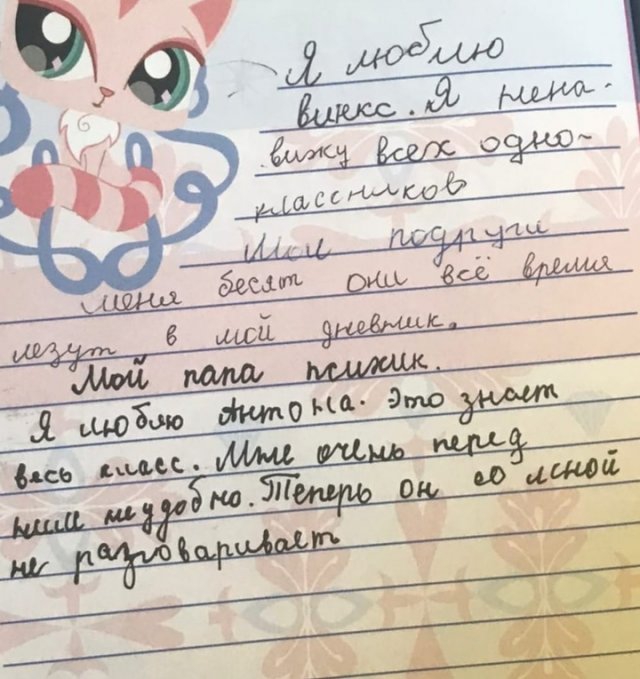 Я люблю
винкс. Я нена-
вижу всех одно-
классников
Мои подруги
меня бесят они всё время
лезут в мой дневник.
Мой папа психик.
Я люблю Антона. Это знает
весь класс. Мне очень перед
ним неудобно. Теперь он со мной
не разговаривает